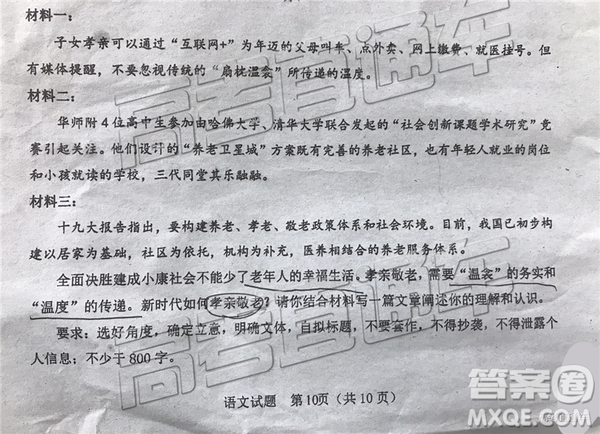 材料一：
子女孝亲可以通过“互联网+”为年迈的父母叫车、点外卖、网上缴费、就医挂号。但
有媒体提醒，不要忽视传统的“扇枕温衾”所传递的温度。
材料二：
华师附4位高中生参加由哈佛大学、清华大学联合发起的“社会创新课题学术研究”竞
赛引起关注。他们设计的“养老卫星城”方案既有完善的养老社区，也有年轻人就业的岗位
和小孩就读的学校，三代同堂其乐融融。
材料三：
十九大报告指出，要构建养老、孝老、敬老政策体系和社会环境。目前，我国已初步构
建以居家为基础，社区为依托，机构为补充，医养相结合的养老服务体系。
全面决胜建成小康社会不能少了老年人的幸福生活。孝亲敬老，需要“温衾”的务实和
“温度”的传递。新时代如何孝亲敬老？请你结合材料写一篇文章阐述你的理解和认识。
要求：选好角度，确定立意，明确文体，自拟标题，不要套作，不得抄袭，不得泄露个
人信息；不少于800字。
语文试题 第10页（共10页）
高考直通车
高考直通车
答案圈
MXQE.COM